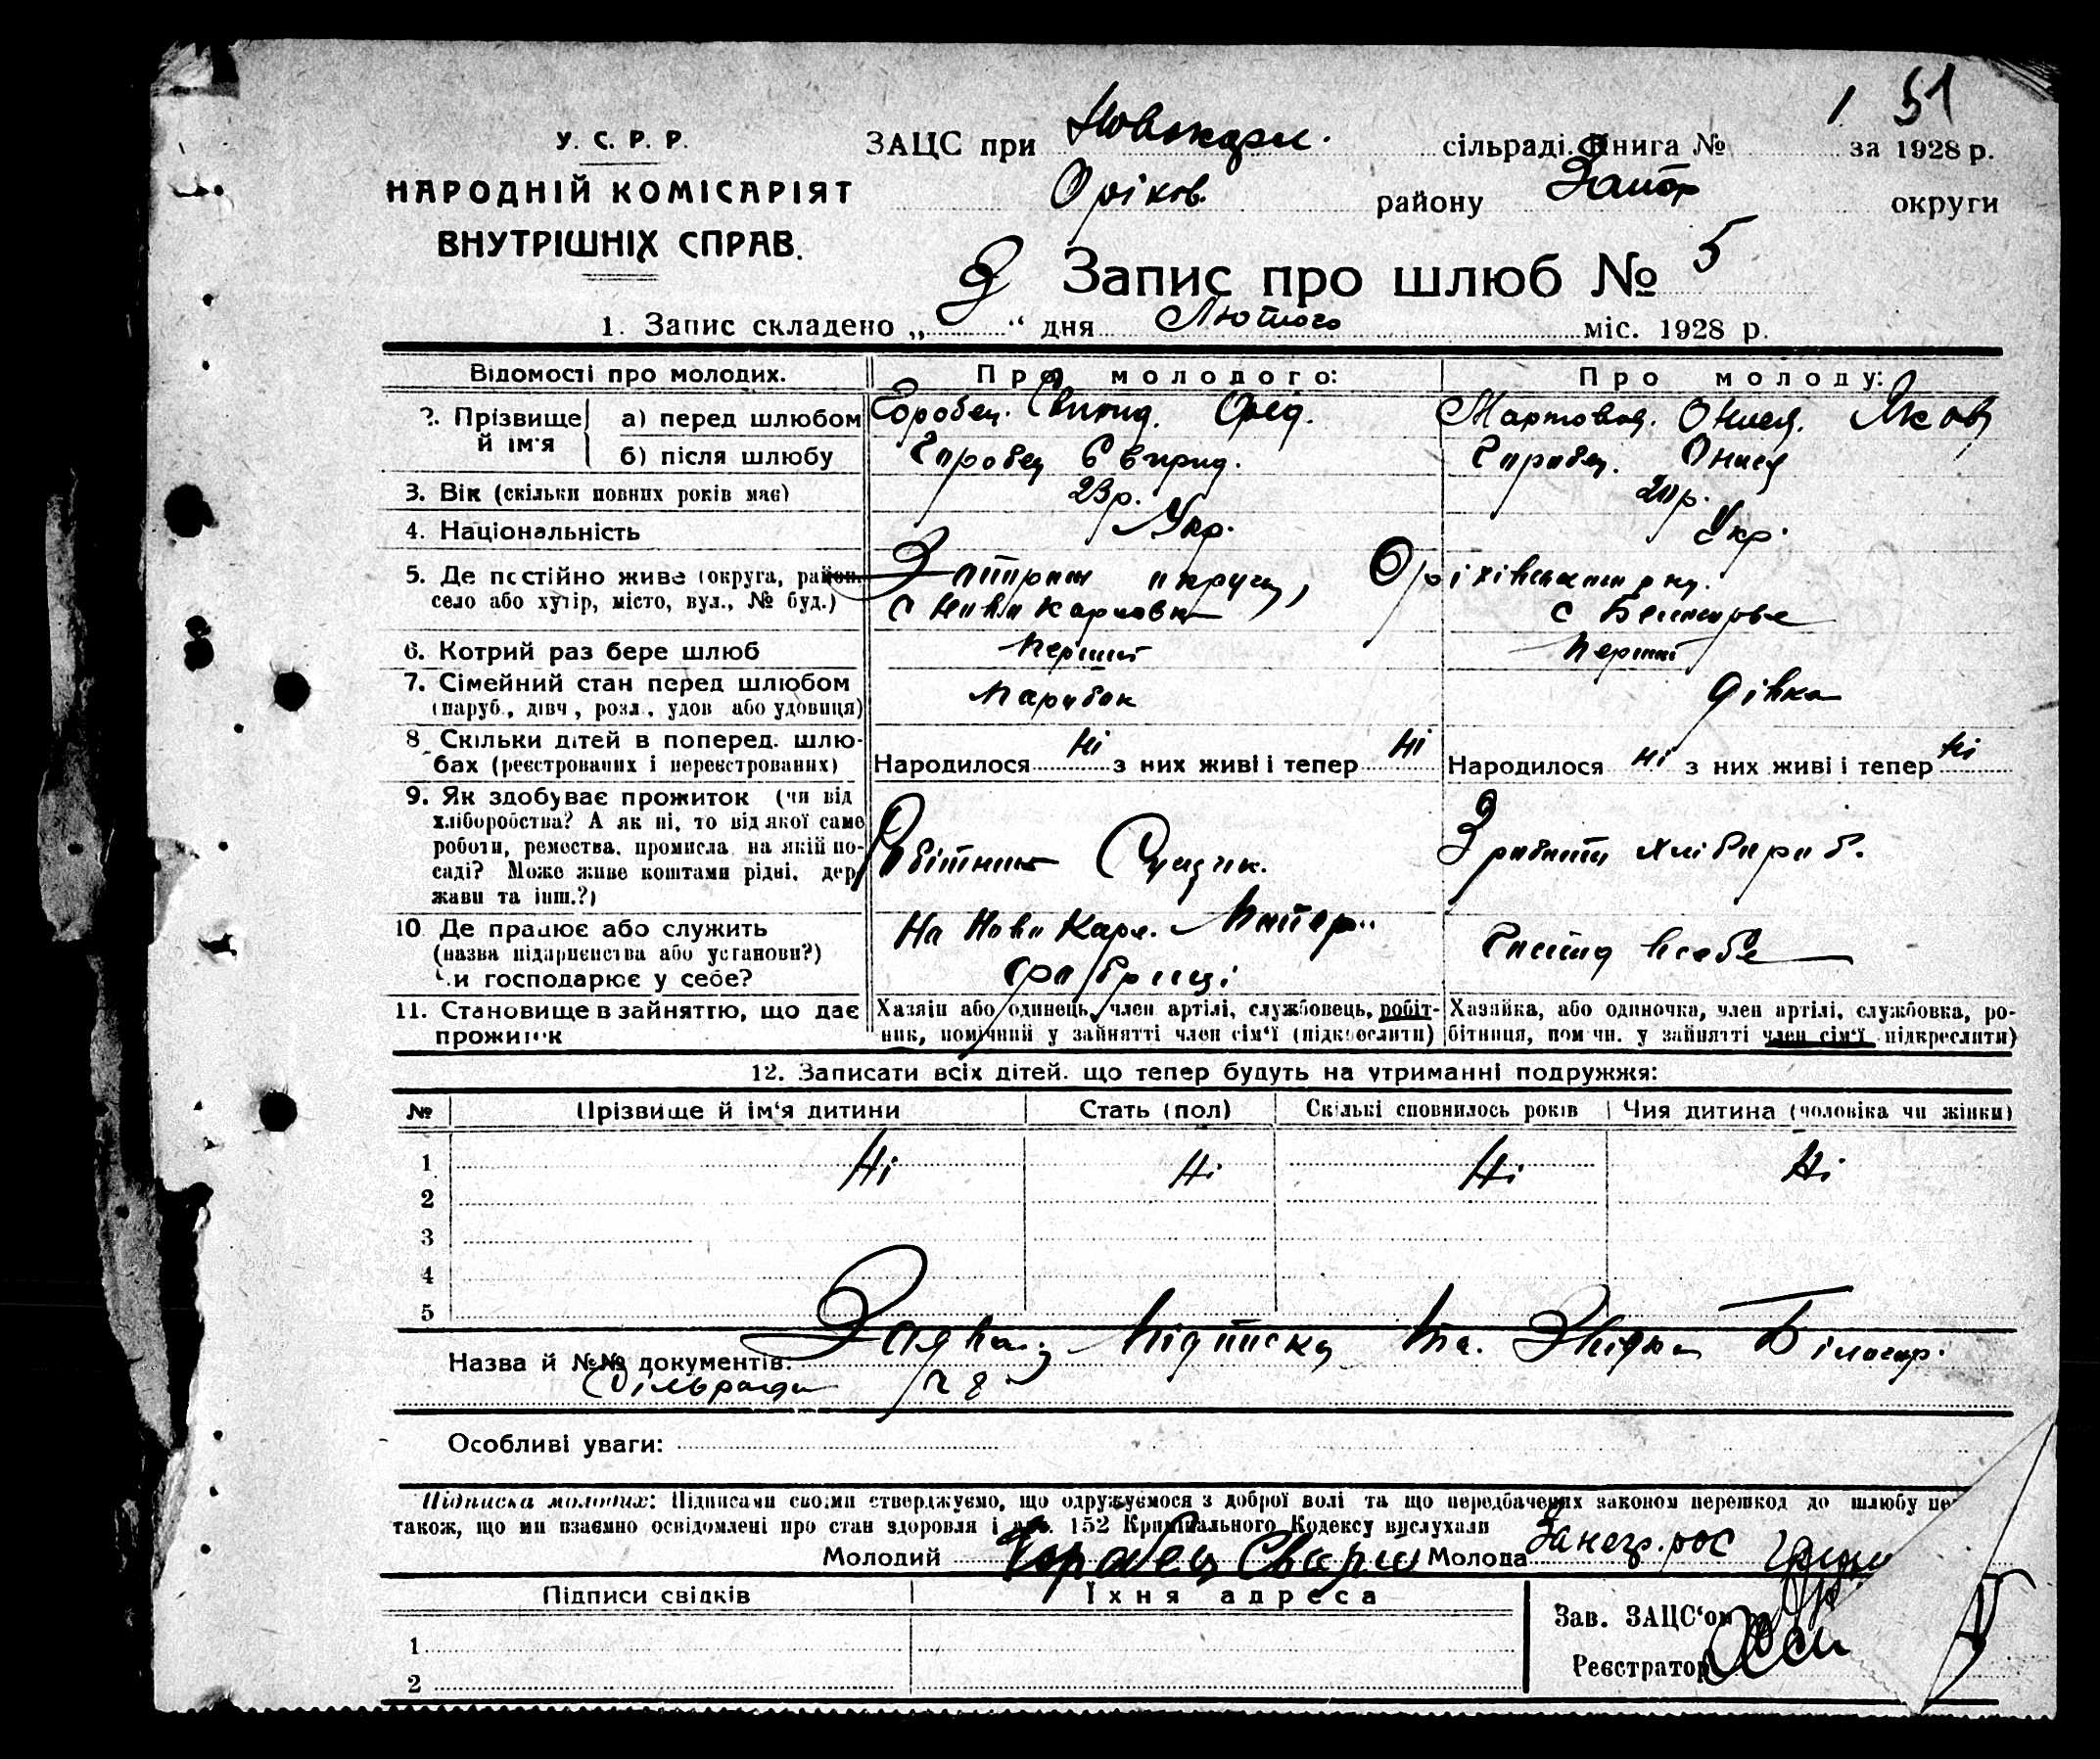 1 51
У. С. Р. Р.
НАРОДНІЙ КОМІСАРІЯТ
ВНУТРІШНІХ СПРАВ.
ЗАЦС при Новокарл. сільраді. Книга № за 1928 р.
Оріков. району Запор округи
Запис про шлюб № 5
1. Запис складено „ “ дня Лютого міс. 1928 р.
Відомості про молодих. Про молодого: Про молоду:
2. Прізвище й ім'я а) перед шлюбом Горобец. Онися. Яков
б) після шлюбу Горобец Свирид. Горобец. Онися
3. Вік (скільки повних років має) 23 р. 20 р.
4. Національність Укр. Укр.
5. Де постійно живе (округа, район. Запориж округи, Оріхівського р-ну.
село або хутір, місто, вул., № буд.) с Ново Карловка с
6. Котрий раз бере шлюб Перший Перший
7. Сімейний стан перед шлюбом Парубок Дівка
(паруб., дівч., розл., удов або удовиця)
8. Скільки дітей в поперед. шлю-
бах (реєстрованих і нереєстрованих) Народилося ні з них живі і тепер ні Народилося ні з них живі і тепер ні
9. Як здобуває прожиток (чи від
хліборобства? А як ні, то від якої саме
роботи, ремества, промисла, на якій по- Робітник Зробити хлібороб.
саді? Може живе коштами рідні, дер
жави та інш.?)
10. Де працює або служить На Ново Карл.
(назва підприємства або установи?) Господ в себе
Чи господарює у себе? фабриці
11. Становище в зайняттю, що дає прожиток
Хазяїн або одинець, член артілі, службовець, робіт-
ник, помічний у зайнятті член сім'ї (підкреслити)
Хазяйка, або одиночка, член артілі, службовка, ро-
бітниця, пом чн. у зайнятті член сім'ї підкреслити)
12. Записати всіх дітей. що тепер будуть на утриманні подружжя:
№ Прізвище й ім'я дитини Стать (пол) Скількі сповнилось років Чия дитина (чоловіка чи жінки)
1 Ні Ні Ні Ні
2
3
4
5
Назва й №№ документів: Заява, підписка та
Сільради
Особливі уваги:
Підписка молодих: Підписами своїми стверджуємо, що одружуємося з доброї волі та що передбачених законом перешкод до шлюбу
також, що ми взаємно освідомлені про стан здоровля і арт. 152 Кримінального Кодексу вислухали
Молодий Горобец Молода
Підписи свідків Їхня адреса
Зав. ЗАЦС'ом
1
Реєстратор
2